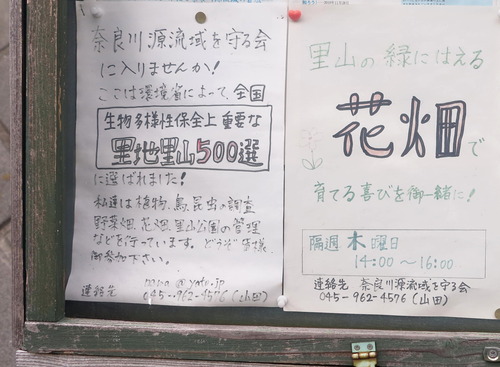 奈良川源流域を守る会
に入りませんか!
ここは環境省によって、全国
生物多様性保全上重要な
里地里山500選
に選ばれました!
私達は植物、鳥、昆虫の調査
野菜畑、花畑、里山公園の管理
などを行っています。どうぞ皆様
御参加下さい。
連絡先
045-962-4576(山田)
里山の緑にはえる
花畑で
育てる喜びを御一緒に!
隔週木曜日
14:00〜16:00
連絡先 奈良川源流域を守る会
045-962-4576(山田)